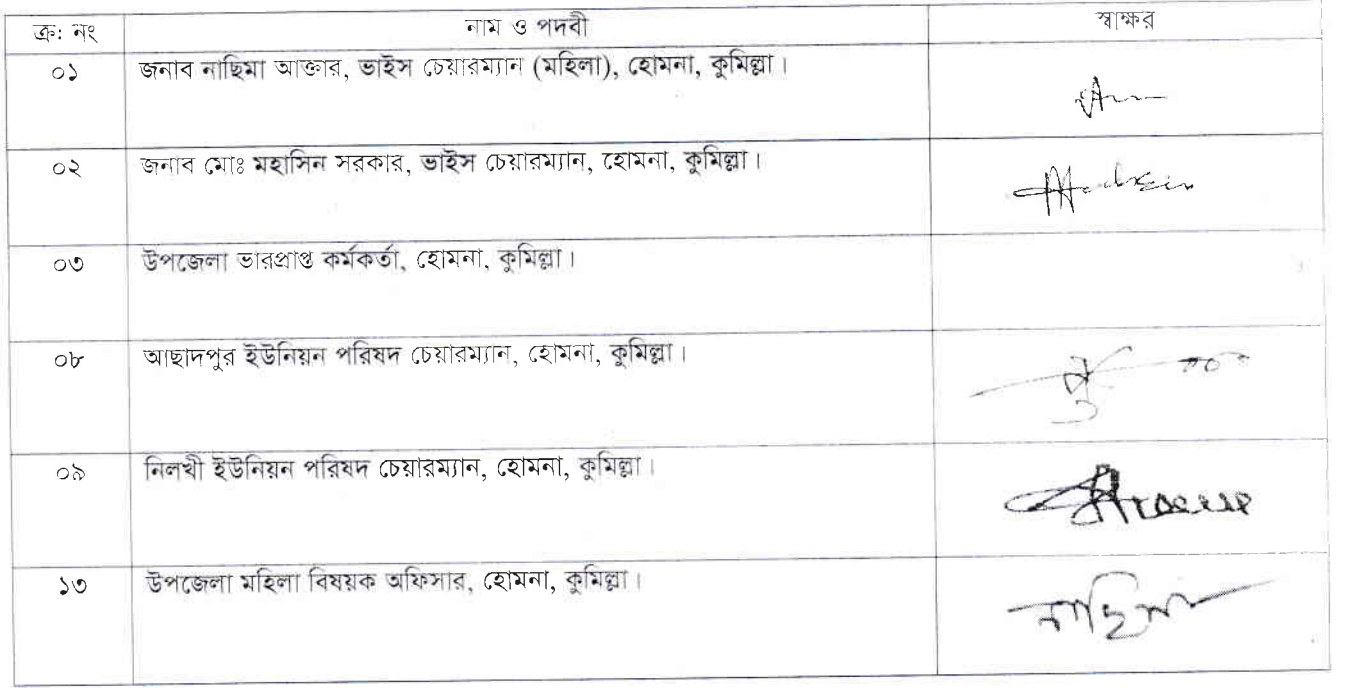 ক্র: নং নাম ও পদবী স্বাক্ষর
০১ জনাব নাছিমা আক্তার, ভাইস চেয়ারম্যান (মহিলা), হোমনা, কুমিল্লা।
০২ জনাব মোঃ মহাসিন সরকার, ভাইস চেয়ারম্যান, হোমনা, কুমিল্লা।
০৩ উপজেলা ভারপ্রাপ্ত কর্মকর্তা, হোমনা, কুমিল্লা।
০৮ আছাদপুর ইউনিয়ন পরিষদ চেয়ারম্যান, হোমনা, কুমিল্লা।
০৯ নিলখী ইউনিয়ন পরিষদ চেয়ারম্যান, হোমনা, কুমিল্লা।
১৩ উপজেলা মহিলা বিষয়ক অফিসার, হোমনা, কুমিল্লা।